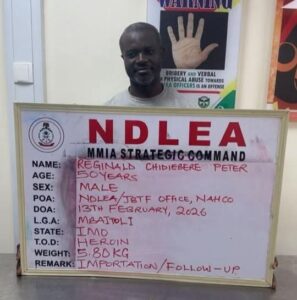 WARNING
BRIBERY and VERBAL
or PHYSICAL ABUSE TOWARDS
NDLEA OFFICERS IS AN OFFENSE
NDLEA
MMIA STRATEGIC COMMAND
NAME: REGINALD CHIDIEBERE PETER
AGE: 50 YEARS
SEX: MALE
POA: NDLEA/JBTF OFFICE, NAHCO
DOA: 13TH FEBRUARY, 2026
L.G.A: MBAITOLI
STATE: IMO
T.O.D: HEROIN
WEIGHT: 5.80KG
REMARK: IMPORTATION/FOLLOW-UP